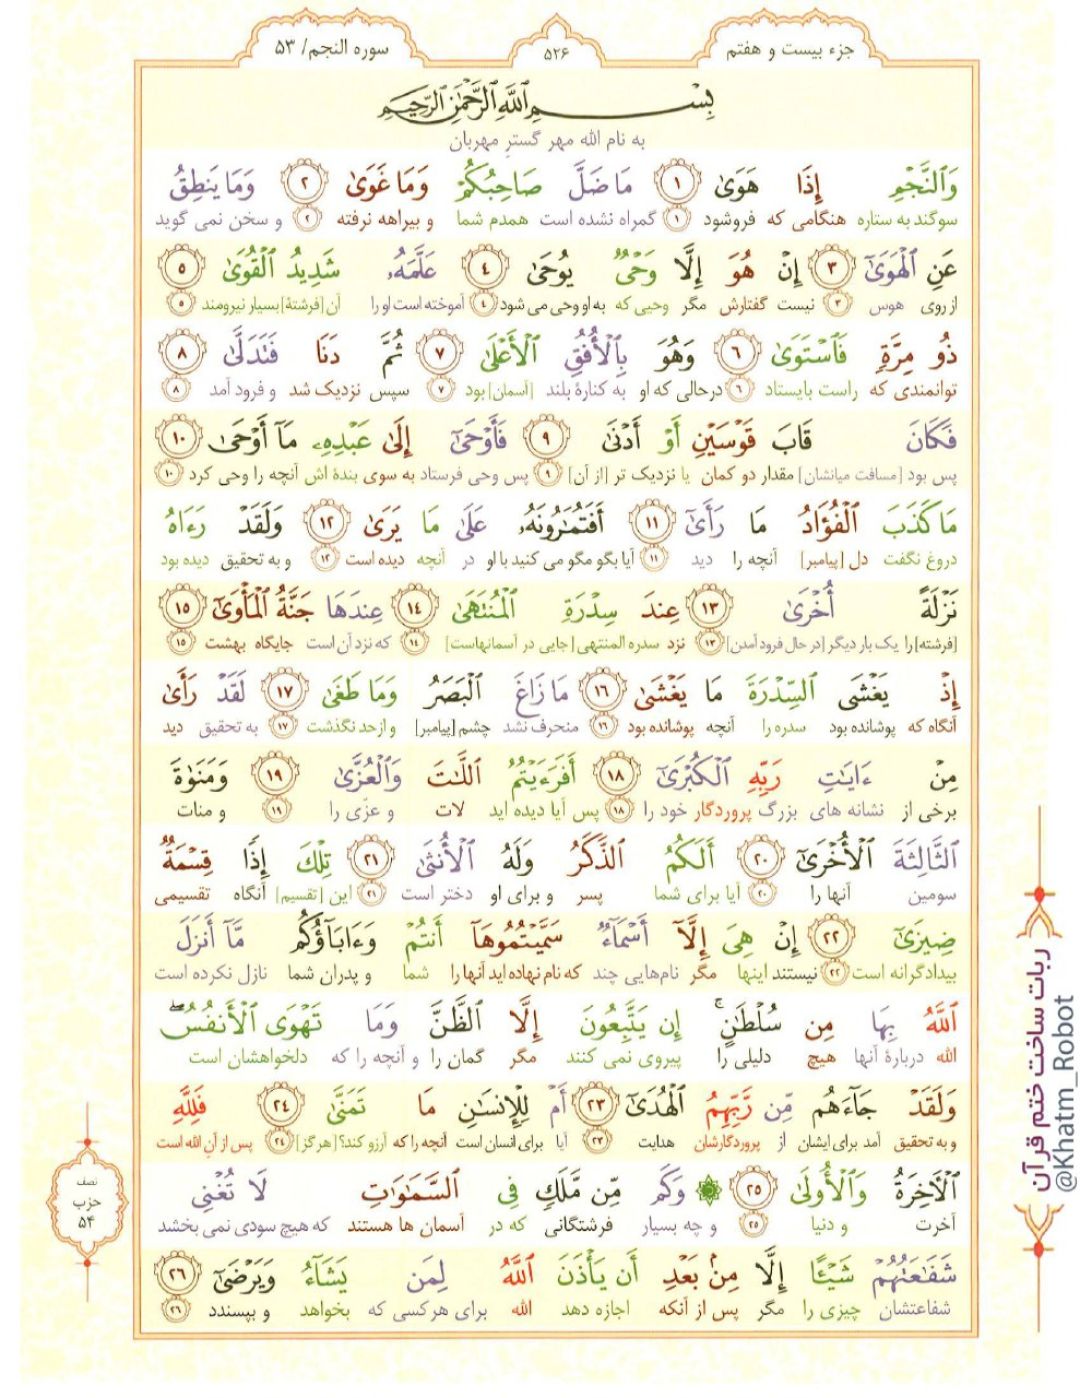 جزء بیست و هفتم
۵۲۶
سوره النجم/ ۵۳
بِسْمِ ٱللَّهِ ٱلرَّحْمَٰنِ ٱلرَّحِيمِ
به نام الله مهر گسترِ مهربان
وَٱلنَّجْمِ إِذَا هَوَىٰ ١ مَا ضَلَّ صَاحِبُكُمْ وَمَا غَوَىٰ ٢ وَمَا يَنطِقُ
سوگند به ستاره هنگامی که فروشود ۱ گمراه نشده است همدم شما و بیراهه نرفته ۲ و سخن نمی گوید
عَنِ ٱلْهَوَىٰٓ ٣ إِنْ هُوَ إِلَّا وَحْىٌ يُوحَىٰ ٤ عَلَّمَهُۥ شَدِيدُ ٱلْقُوَىٰ ٥
از روی هوس ۳ نیست گفتارش مگر وحیی که به او وحی می شود ۴ آموخته است او را آن [فرشتهٔ] بسیار نیرومند ۵
ذُو مِرَّةٍ فَٱسْتَوَىٰ ٦ وَهُوَ بِٱلْأُفُقِ ٱلْأَعْلَىٰ ٧ ثُمَّ دَنَا فَتَدَلَّىٰ ٨
توانمندی که راست بایستاد ۶ درحالی که او به کنارهٔ بلند [آسمان] بود ۷ سپس نزدیک شد و فرود آمد ۸
فَكَانَ قَابَ قَوْسَيْنِ أَوْ أَدْنَىٰ ٩ فَأَوْحَىٰٓ إِلَىٰ عَبْدِهِۦ مَآ أَوْحَىٰ ١٠
پس بود [مسافت میانشان] مقدار دو کمان یا نزدیک تر [از آن] ۹ پس وحی فرستاد به سوی بندهٔ اش آنچه را وحی کرد ۱۰
مَا كَذَبَ ٱلْفُؤَادُ مَا رَأَىٰٓ ١١ أَفَتُمَٰرُونَهُۥ عَلَىٰ مَا يَرَىٰ ١٢ وَلَقَدْ رَءَاهُ
دروغ نگفت دل [پیامبر] آنچه را دید ۱۱ آیا بگو مگو می کنید با او در آنچه دیده است ۱۲ و به تحقیق دیده بود
نَزْلَةً أُخْرَىٰ ١٣ عِندَ سِدْرَةِ ٱلْمُنتَهَىٰ ١٤ عِندَهَا جَنَّةُ ٱلْمَأْوَىٰٓ ١٥
[فرشته] را یک بار دیگر [در حال فرود آمدن] ۱۳ نزد سدره المنتهی [جایی در آسمانهاست] ۱۴ که نزد آن است جایگاه بهشت ۱۵
إِذْ يَغْشَى ٱلسِّدْرَةَ مَا يَغْشَىٰ ١٦ مَا زَاغَ ٱلْبَصَرُ وَمَا طَغَىٰ ١٧ لَقَدْ رَأَىٰ
آنگاه که پوشانده بود سدره را آنچه پوشانده بود ۱۶ منحرف نشد چشم [پیامبر] و ازحد نگذشت ۱۷ به تحقیق دید
مِنْ ءَايَٰتِ رَبِّهِ ٱلْكُبْرَىٰٓ ١٨ أَفَرَءَيْتُمُ ٱللَّٰتَ وَٱلْعُزَّىٰ ١٩ وَمَنَوٰةَ
برخی از نشانه های بزرگ پروردگار خود را ۱۸ پس آیا دیده اید لات و عزّی را ۱۹ و منات
ٱلثَّالِثَةَ ٱلْأُخْرَىٰٓ ٢٠ أَلَكُمُ ٱلذَّكَرُ وَلَهُ ٱلْأُنثَىٰ ٢١ تِلْكَ إِذًا قِسْمَةٌ
سومین آنها را ۲۰ آیا برای شما پسر و برای او دختر است ۲۱ این [تقسیم] آنگاه تقسیمی
ضِيزَىٰٓ ٢٢ إِنْ هِىَ إِلَّآ أَسْمَآءٌ سَمَّيْتُمُوهَآ أَنتُمْ وَءَابَآؤُكُم مَّآ أَنزَلَ
بیدادگرانه است ۲۲ نیستند اینها مگر نام‌هایی چند که نام نهاده اید آنها را شما و پدران شما نازل نکرده است
ٱللَّهُ بِهَا مِن سُلْطَٰنٍ ۚ إِن يَتَّبِعُونَ إِلَّا ٱلظَّنَّ وَمَا تَهْوَى ٱلْأَنفُسُ ۖ
الله دربارهٔ آنها هیچ دلیلی را پیروی نمی کنند مگر گمان را و آنچه را که دلخواهشان است
وَلَقَدْ جَآءَهُم مِّن رَّبِّهِمُ ٱلْهُدَىٰٓ ٢٣ أَمْ لِلْإِنسَٰنِ مَا تَمَنَّىٰ ٢٤ فَلِلَّهِ
و به تحقیق آمد برای ایشان از پروردگارشان هدایت ۲۳ آیا برای انسان است آنچه را که آرزو کند؟ [هرگز] ۲۴ پس از آنِ الله است
ٱلْءَاخِرَةُ وَٱلْأُولَىٰ ٢٥ وَكَم مِّن مَّلَكٍ فِى ٱلسَّمَٰوَٰتِ لَا تُغْنِى
آخرت و دنیا ۲۵ و چه بسیار فرشتگانی که در آسمان ها هستند که هیچ سودی نمی بخشد
شَفَٰعَتُهُمْ شَيْـًٔا إِلَّا مِنۢ بَعْدِ أَن يَأْذَنَ ٱللَّهُ لِمَن يَشَآءُ وَيَرْضَىٰٓ ٢٦
شفاعتشان چیزی را مگر پس از آنکه اجازه دهد الله برای هر کسی که بخواهد و بپسندد ۲۶
نصف
حزب
۵۴
ربات ساخت ختم قرآن
@Khatm_Robot